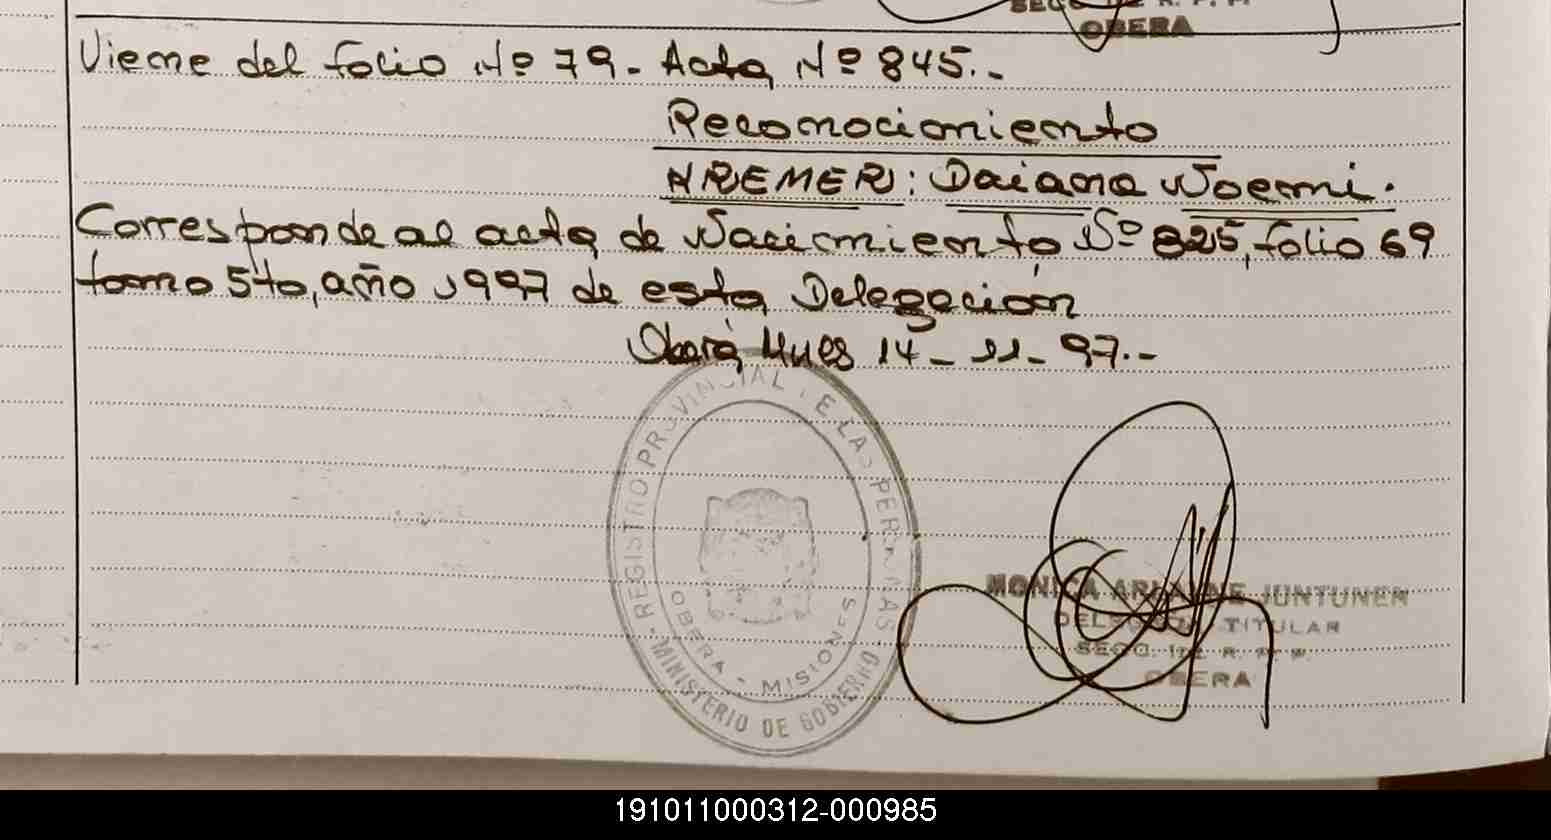 SECC. 1ra. R. P. P.
OBERA
Viene del folio Nº 79. Acta Nº 845.-
Reconocimiento
KREMER: Daiana Noemi.
Corresponde al acta de Nacimiento Nº 825, folio 69
tomo 5to, año 1997 de esta Delegación
Oberá, Mnes 14 - 11 - 97.-
REGISTRO PROVINCIAL DE LAS PERSONAS
OBERA - MISIONES
MINISTERIO DE GOBIERNO
MONICA ARLAINE JUNTUNEN
DELEGADA TITULAR
SECC. 1ra. R. P. P.
OBERA
191011000312-000985